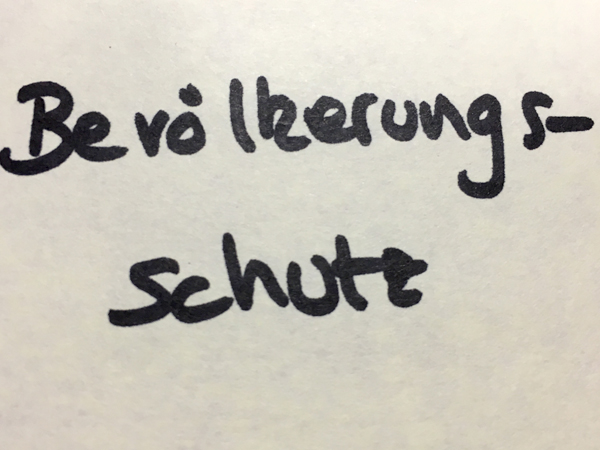 Bevölkerungs-
schutz